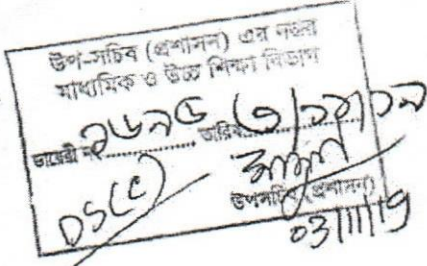 উপ-সচিব (প্রশাসন) এর দপ্তর
মাধ্যমিক ও উচ্চ শিক্ষা বিভাগ
ডায়েরী নং........ তারিখ........
DS(C)
উপসচিব (প্রশাসন)
03/11/19